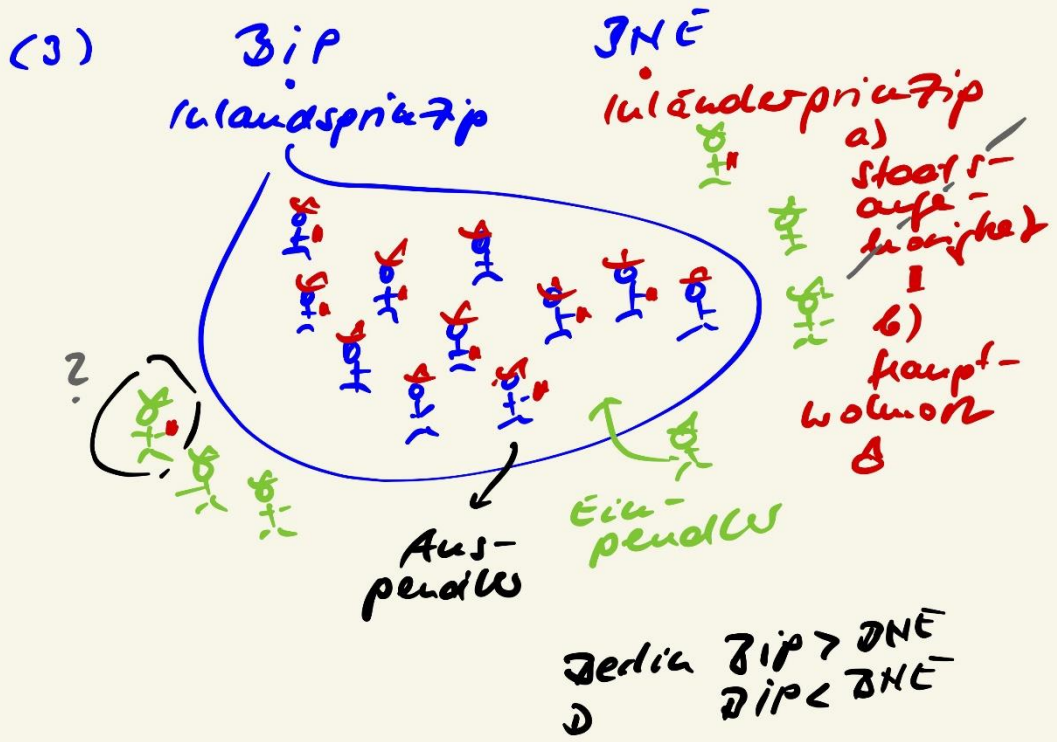 (3) BIP BNE
Inlandsprinzip
Inländerprinzip
a)
Staats-
ange-
hörigkeit
b)
Haupt-
wohnort
?
Aus-
pendler
Ein-
pendler
Berlin BIP > BNE
D BIP < BNE